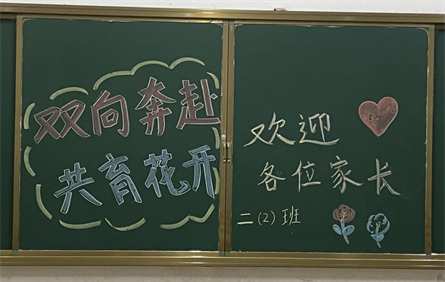 双向奔赴
共育花开
欢迎
各位家长
二(2)班